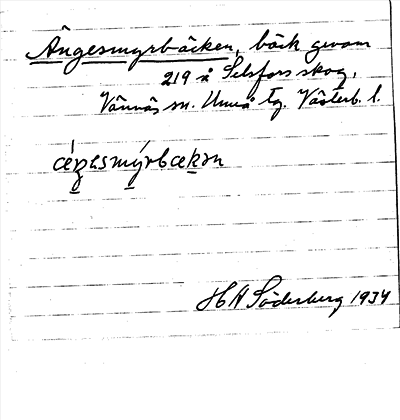 Ängesmyrbäcken, bäck genom
219 å Selsfors skog,
Vännäs sn. Umeå tg. Västerb. l.
H A Söderberg 1934